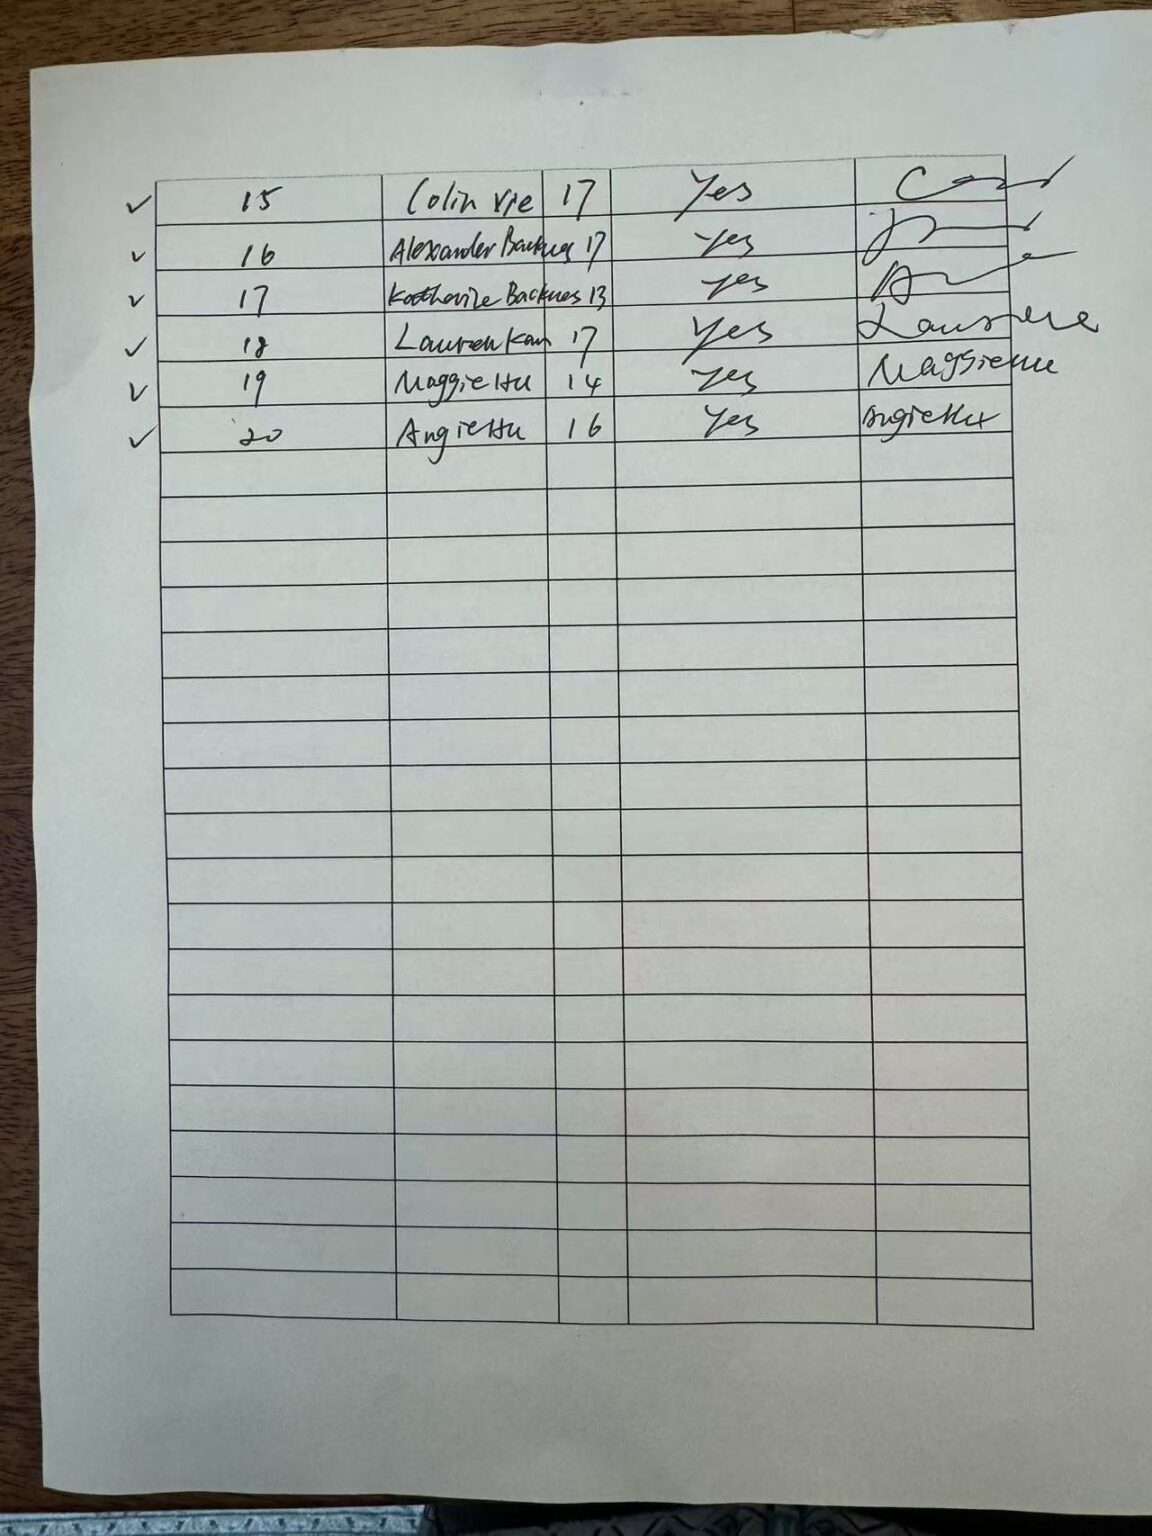 ✓ 15 Colin Xie 17 Yes
✓ 16 Alexander Backues 17 Yes
✓ 17 Katharine Backues 13 Yes
✓ 18 Lauren Kan 17 Yes
✓ 19 Maggie Hu 14 Yes Maggie Hu
✓ 20 Angie Hu 16 Yes Angie Hu